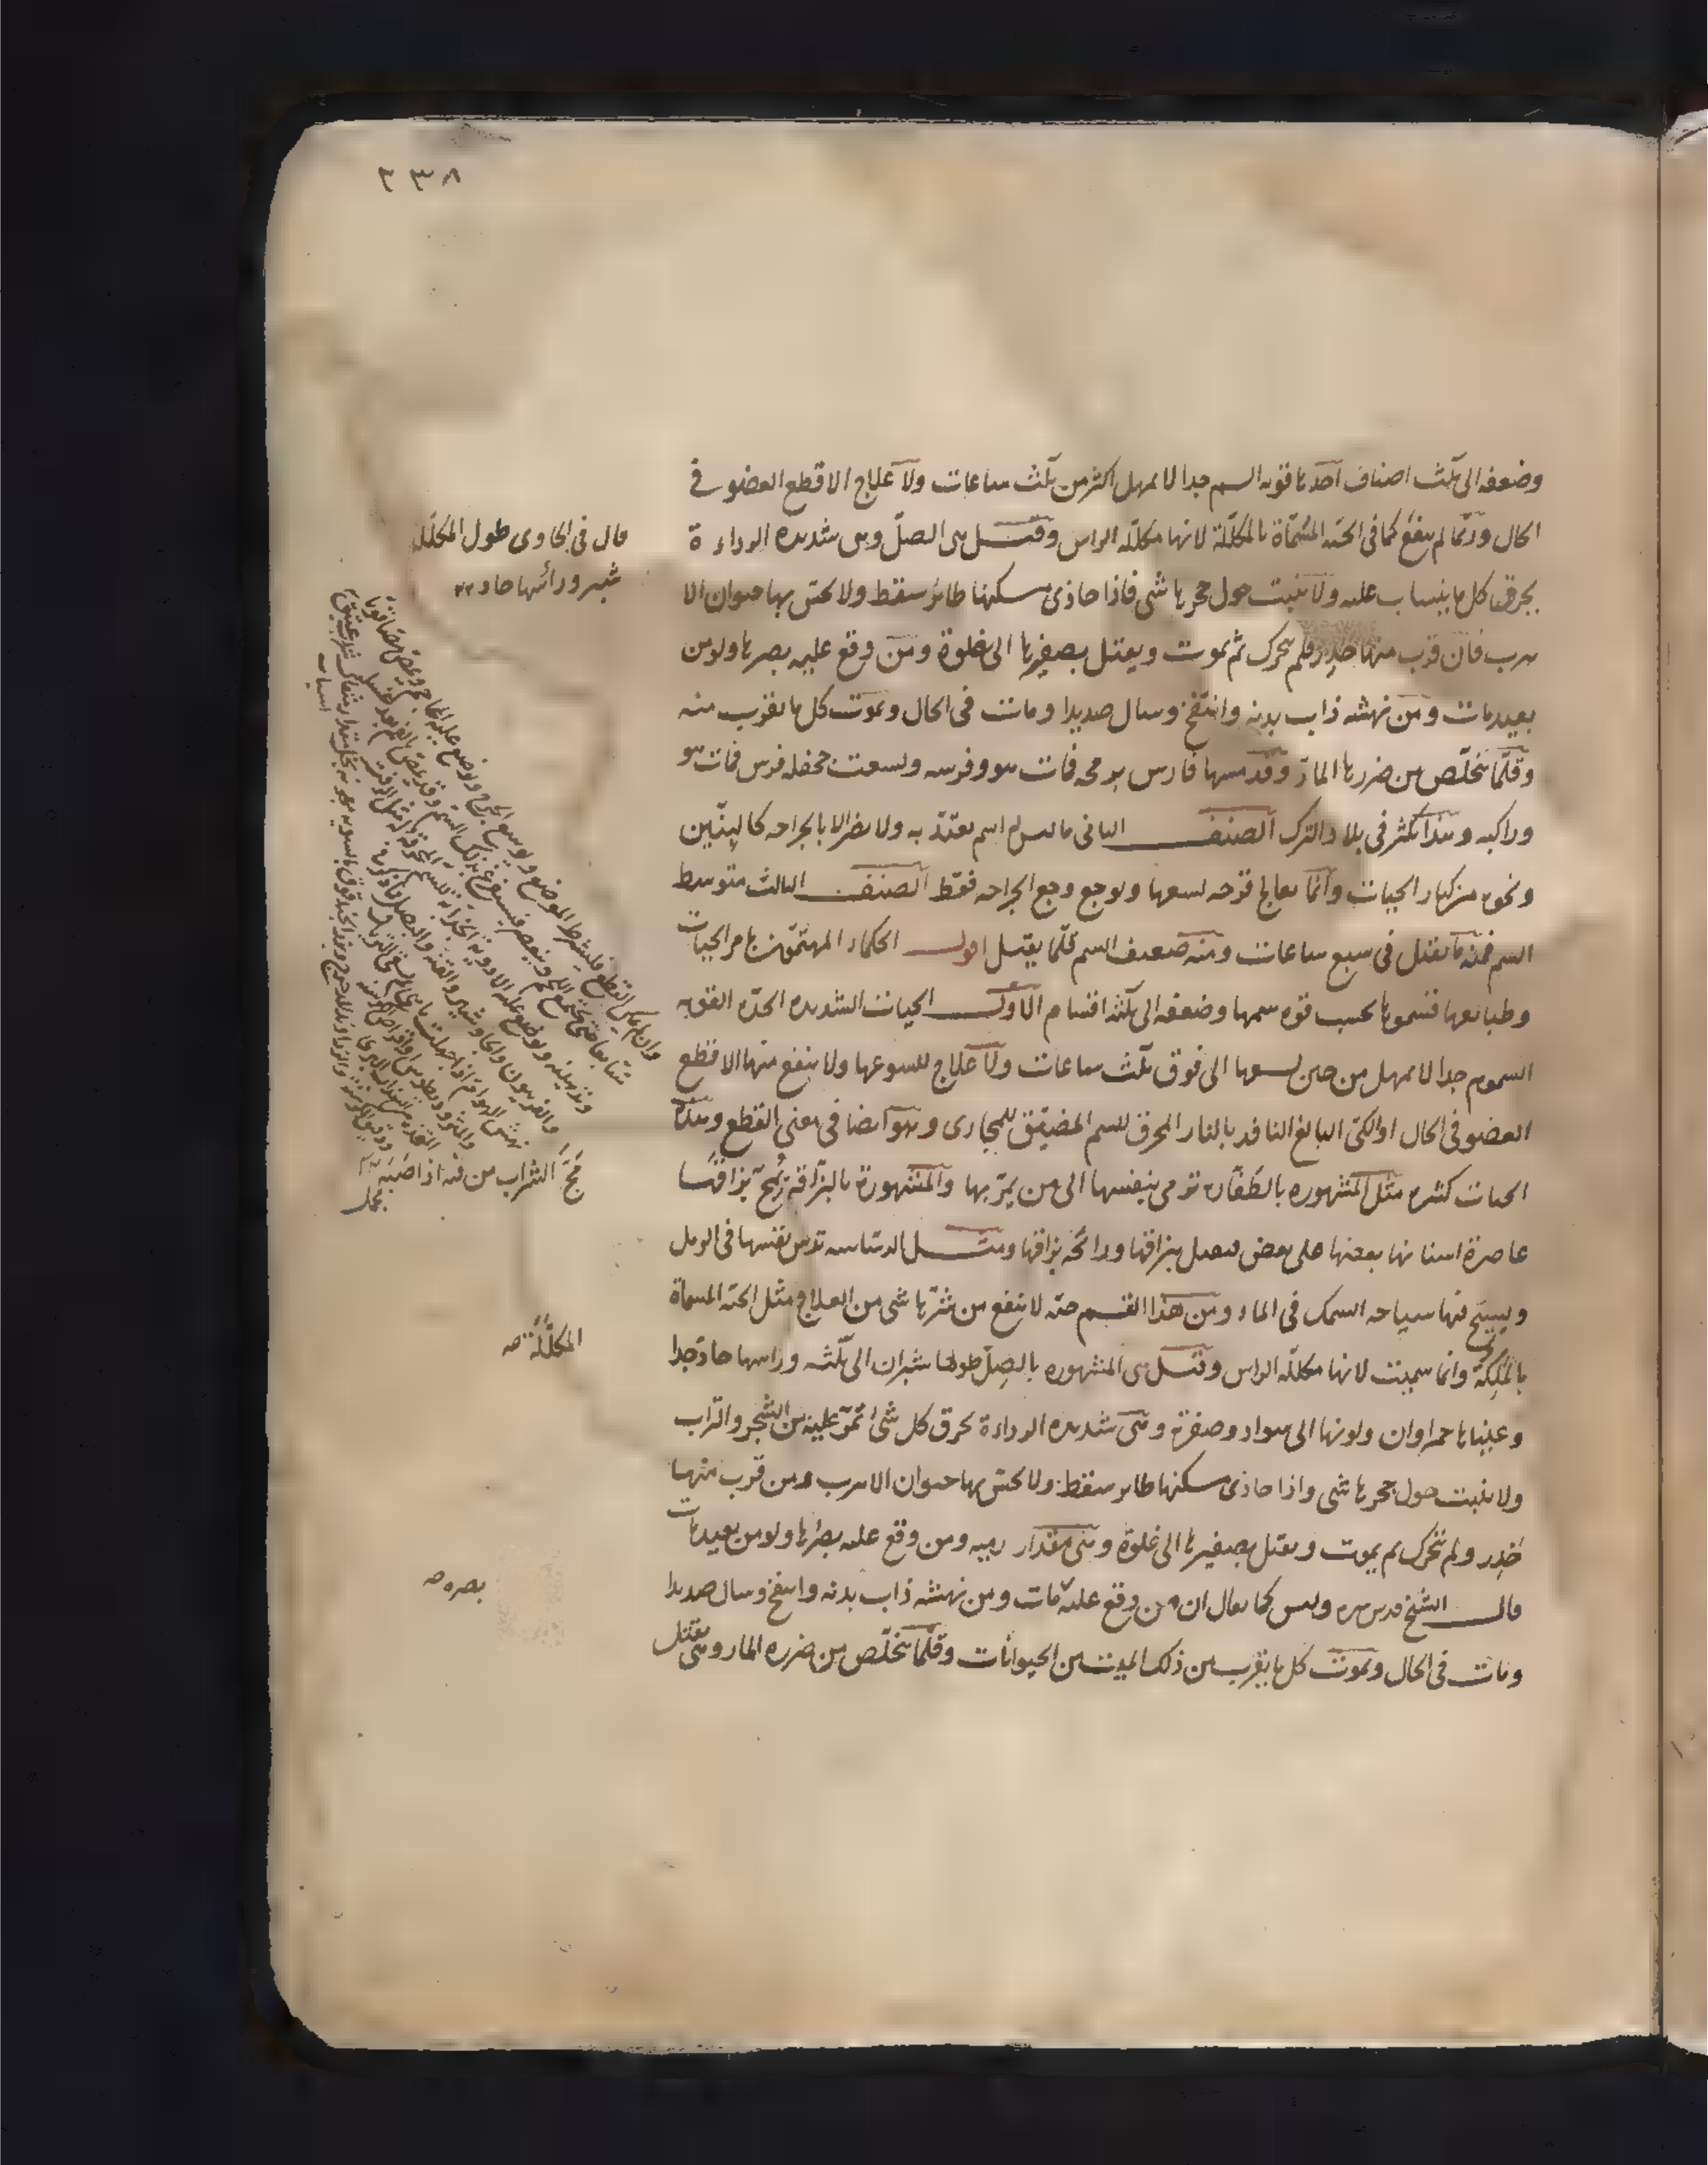 ٣٣٨
وضعفه الى ثلث اصناف احدها قوية السم جدا لا يمهل اكثر من ثلث ساعات ولا علاج الا قطع العضو في
الحال وربما لم ينفع كما في الحية المسماة بالمكللة لانها مكللة الراس وقيل هي الصل وهي شديدة الرداءة
يحرق كل ما ينساب عليه ولا ينبت حول جحرها شئ فاذا حاذى مسكنها طائر سقط ولا يحس بها حيوان الا
هرب فان قرب منها خدر فلم يتحرك ثم يموت ويقتل بصفيرها الى غلوة ومن وقع عليه بصرها ولو من
بعيد مات ومن نهشه ذاب بدنه وانتفخ وسال صديدا ومات في الحال ويموت كل ما يقرب منه
وقلما يتخلص من ضررها المار وقد مسها فارس برمحه فمات هو وفرسه ولسعت جحفلة فرس فمات هو
وراكبه وهذا يكثر في بلاد الترك الصنف الثاني ما ليس لها سم يعتد به ولا يضر الا بالجراحة كالتنين
ونحوه من كبار الحيات وانما يعالج قرحة لسعها ويوجع وجع الجراحة فقط الصنف الثالث متوسط
السم فمنه ما يقتل في سبع ساعات ومنه ضعيف السم قلما يقتل اقول الحكماء المهتمون بامر الحيات
وطبايعها قسموها بحسب قوة سمها وضعفه الى ثلثة اقسام الاول الحيات الشديدة الحدة القوية
السموم جدا لا يمهل من حين لسعها الى فوق ثلث ساعات ولا علاج للسوعها ولا ينفع منها الا قطع
العضو في الحال او الكي البالغ النافذ بالنار المحرق للسم المضيق للمجارى وهو ايضا في معنى القطع وهذه
الحيات كثيرة مثل المشهورة بالطفارة ترمى بنفسها الى من يمر بها والمشهورة بالبزاقة تمج بزاقها
عاصرة اسنانها بعضها على بعض فيقتل ببزاقها ورائحة بزاقها ومثل الدساسة تدس نفسها في الرمل
ويسبح فيها سباحة السمك في الماء ومن هذا القسم حية لا ينفع من شرها شئ من العلاج مثل الحية المسماة
بالملكة وانما سميت لانها مكللة الراس وقيل هي المشهورة بالصل طولها شبران الى ثلثة وراسها حاد جدا
وعيناها حمراوان ولونها الى سواد وصفرة وهي شديدة الرداءة يحرق كل شئ تمر عليه من الشجر والتراب
ولا ينبت حول جحرها شئ واذا حاذى مسكنها طاير سقط ولا يحس بها حيوان الا هرب ومن قرب منها
خدر ولم يتحرك ثم يموت ويقتل بصفيرها الى غلوة وهي مقدار رمية ومن وقع عليه بصرها ولو من بعيد مات
قال الشيخ قدس سره وليس كما يقال ان من وقع عليه مات ومن نهشه ذاب بدنه وانتفخ وسال صديدا
ومات في الحال ويموت كل ما يقرب من ذلك الميت من الحيوانات وقلما يتخلص من ضرره المار وهي يقتل
قال في الحاوى طول المكللة
شبر ورأسها حاد
مج الشراب من فيه اذا صبه
مجمل
المكللة صه
بصره صه